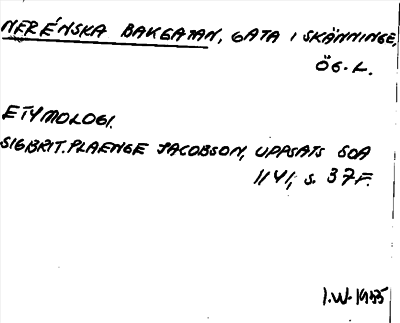 NERÉNSKA BAKGATAN, GATA I SKÄNNINGE,
ÖG. L.
ETYMOLOGI.
SIGBRIT. PLAENGE JACOBSON, UPPSATS SOA
1141, S. 37 F.
I.W. 1955